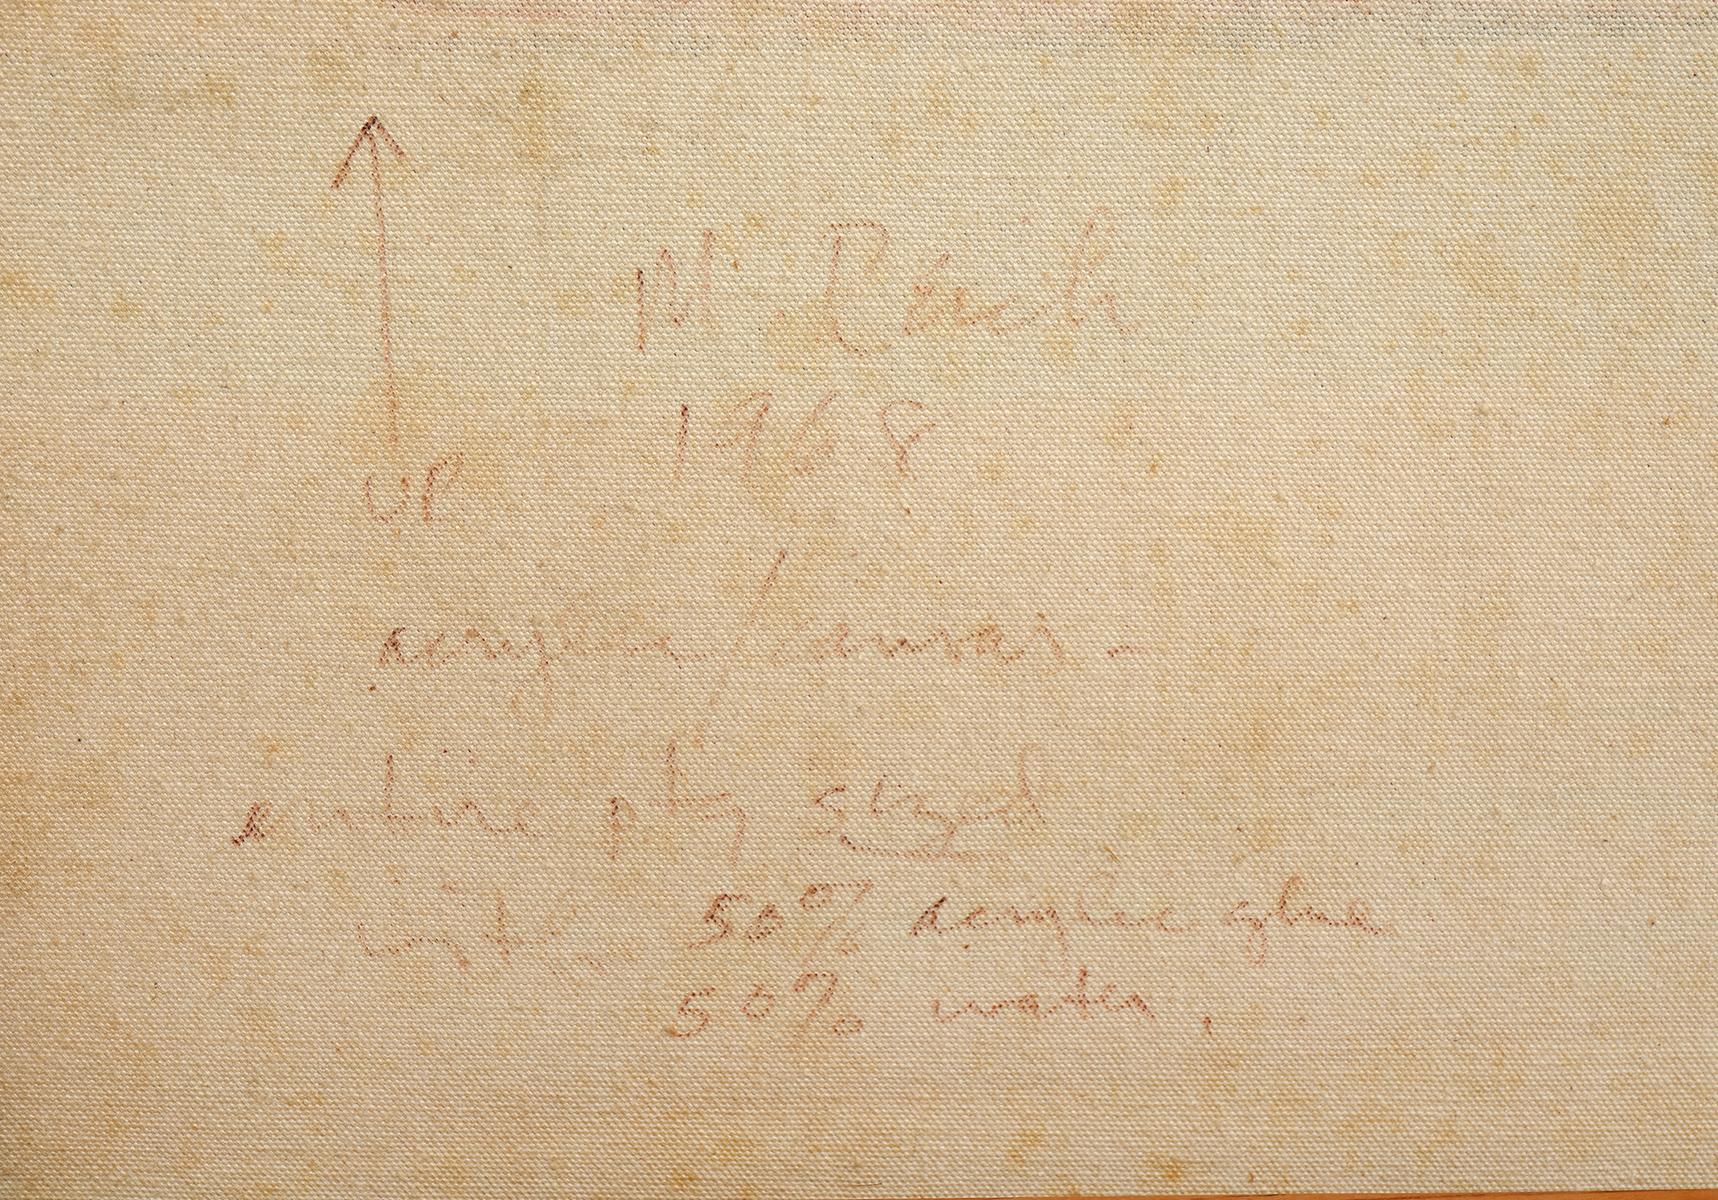 M. Reich
1968
UP
acrylic / canvas -
entire ptg sized
with 50% acrylic glue
50% water.